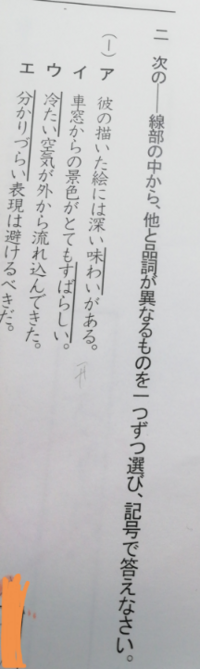 二 次の――線部の中から、他と品詞が異なるものを一つずつ選び、記号で答えなさい。
(一) ア 彼の描いた絵には深い味わいがある。
イ 車窓からの景色がとてもすばらしい。
ウ 冷たい空気が外から流れ込んできた。
エ 分かりづらい表現は避けるべきだ。